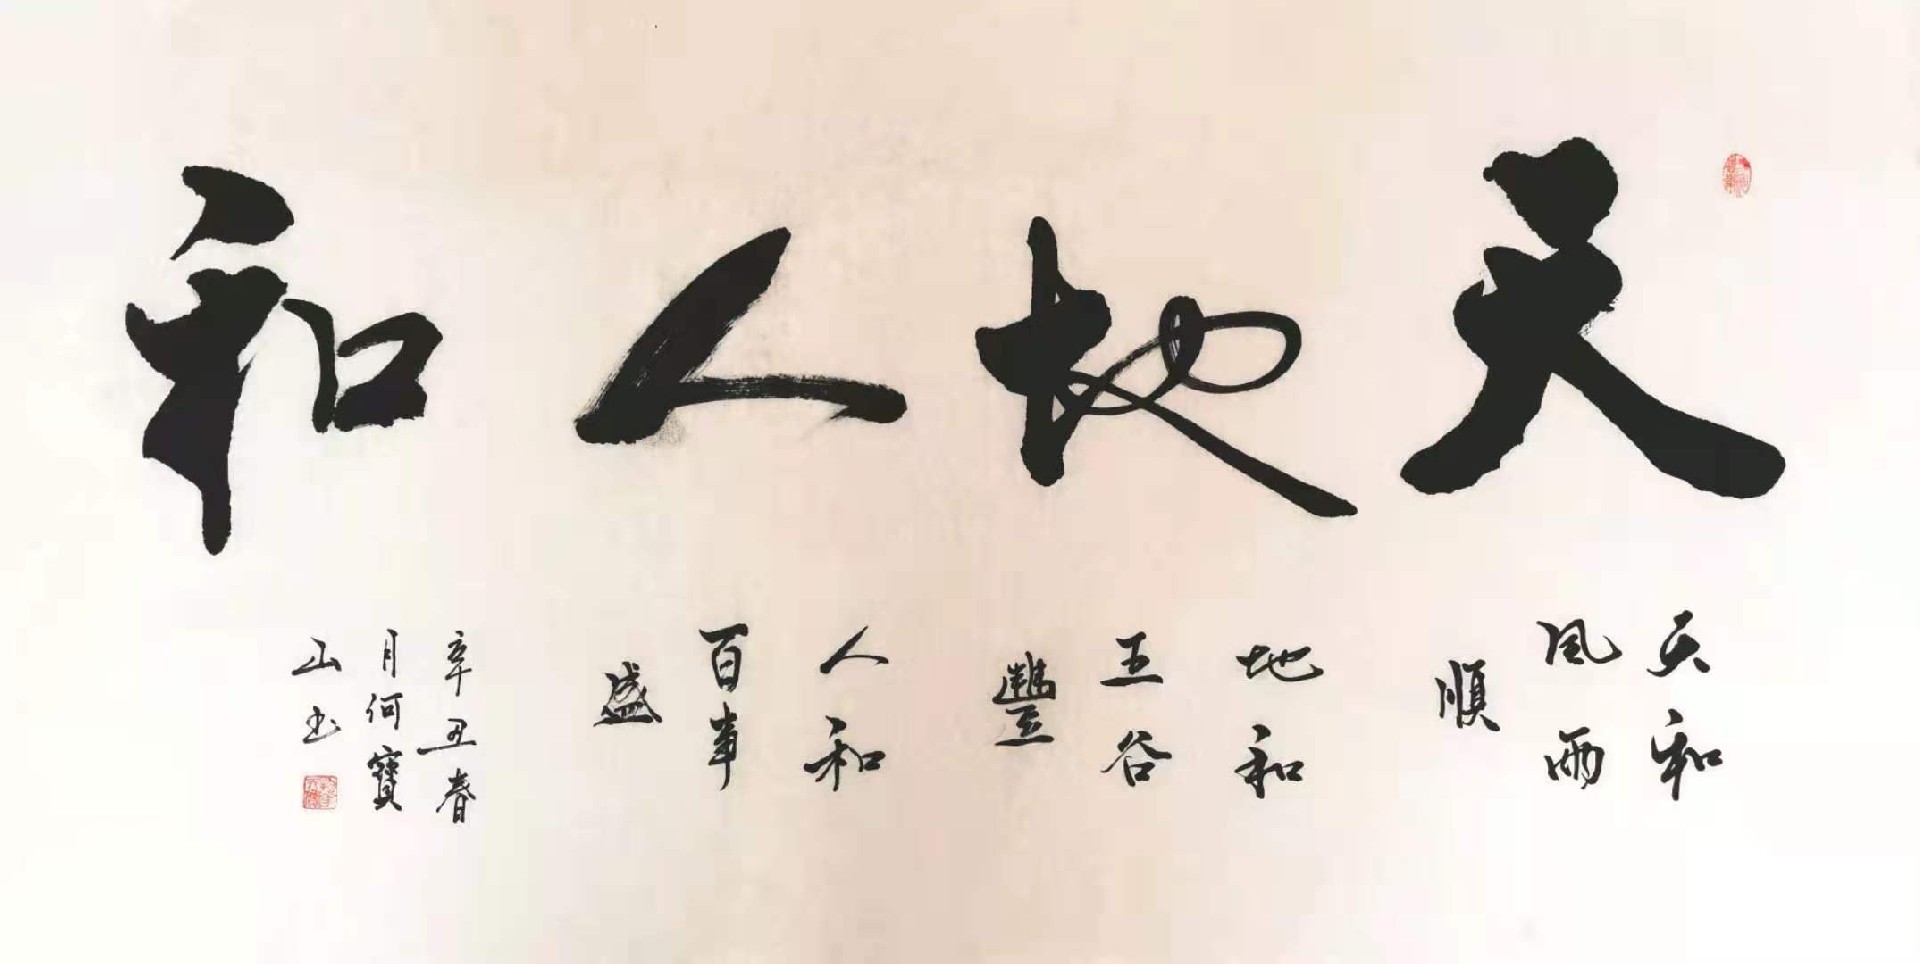 天地人和
天和
風雨
順
地和
五谷
豐
人和
百事
盛
辛丑春
月何寶
山书